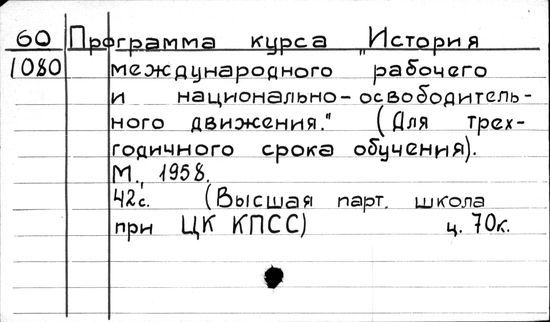 60 Программа курса "История
1080 международного рабочего
и национально-освободитель-
ного движения." (Для трех-
годичного срока обучения).
М., 1958.
42с. (Высшая парт. школа
при ЦК КПСС) ц. 70к.